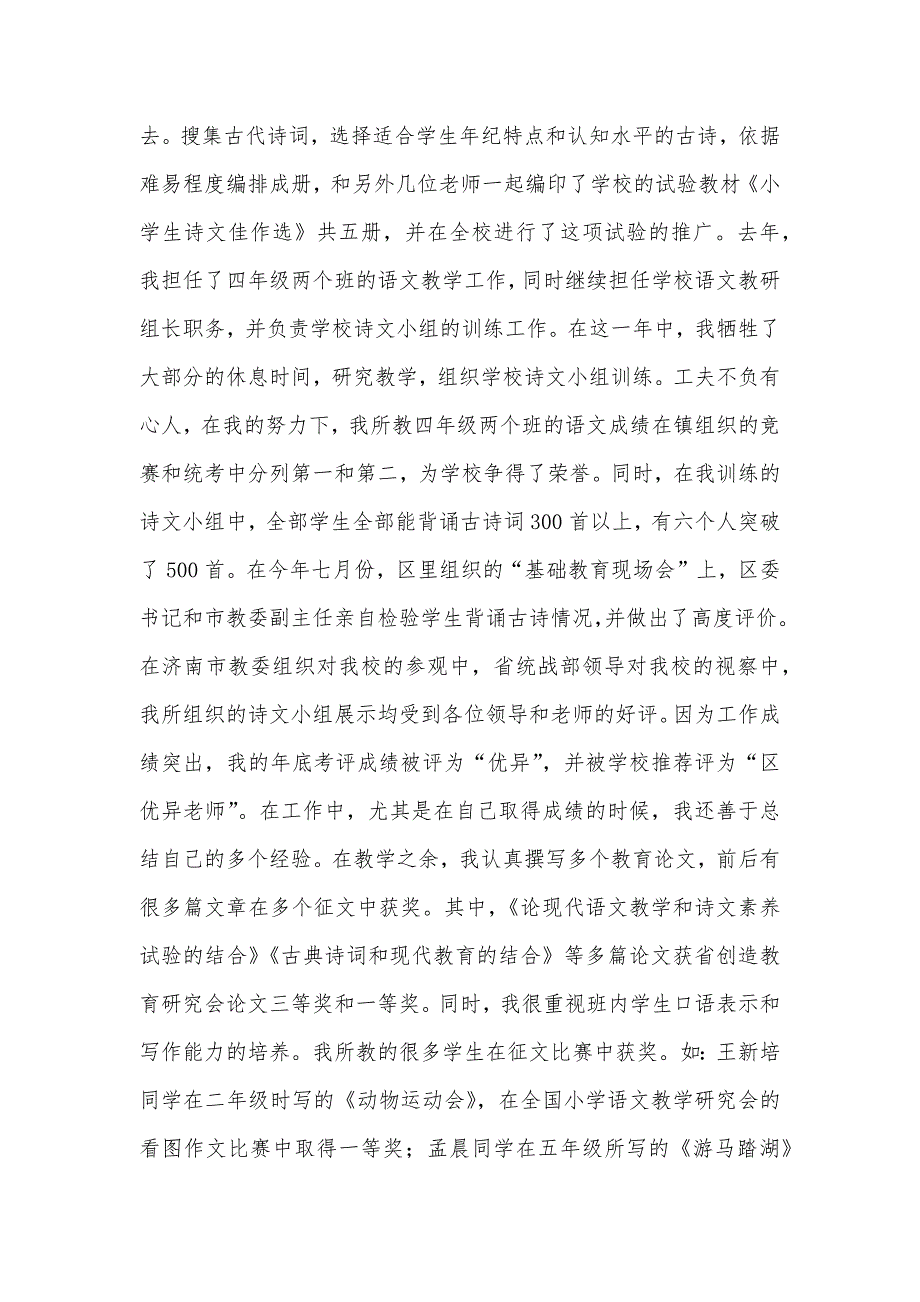 去。搜集古代诗词，选择适合学生年纪特点和认知水平的古诗，依据
难易程度编排成册，和另外几位老师一起编印了学校的试验教材《小
学生诗文佳作选》共五册，并在全校进行了这项试验的推广。去年，
我担任了四年级两个班的语文教学工作，同时继续担任学校语文教研
组长职务，并负责学校诗文小组的训练工作。在这一年中，我牺牲了
大部分的休息时间，研究教学，组织学校诗文小组训练。工夫不负有
心人，在我的努力下，我所教四年级两个班的语文成绩在镇组织的竞
赛和统考中分列第一和第二，为学校争得了荣誉。同时，在我训练的
诗文小组中，全部学生全部能背诵古诗词 300 首以上，有六个人突破
了 500 首。在今年七月份，区里组织的“基础教育现场会”上，区委
书记和市教委副主任亲自检验学生背诵古诗情况，并做出了高度评价。
在济南市教委组织对我校的参观中，省统战部领导对我校的视察中，
我所组织的诗文小组展示均受到各位领导和老师的好评。因为工作成
绩突出，我的年底考评成绩被评为“优异”，并被学校推荐评为“区
优异老师”。在工作中，尤其是在自己取得成绩的时候，我还善于总
结自己的多个经验。在教学之余，我认真撰写多个教育论文，前后有
很多篇文章在多个征文中获奖。其中，《论现代语文教学和诗文素养
试验的结合》《古典诗词和现代教育的结合》等多篇论文获省创造教
育研究会论文三等奖和一等奖。同时，我很重视班内学生口语表示和
写作能力的培养。我所教的很多学生在征文比赛中获奖。如：王新培
同学在二年级时写的《动物运动会》，在全国小学语文教学研究会的
看图作文比赛中取得一等奖；孟晨同学在五年级所写的《游马踏湖》